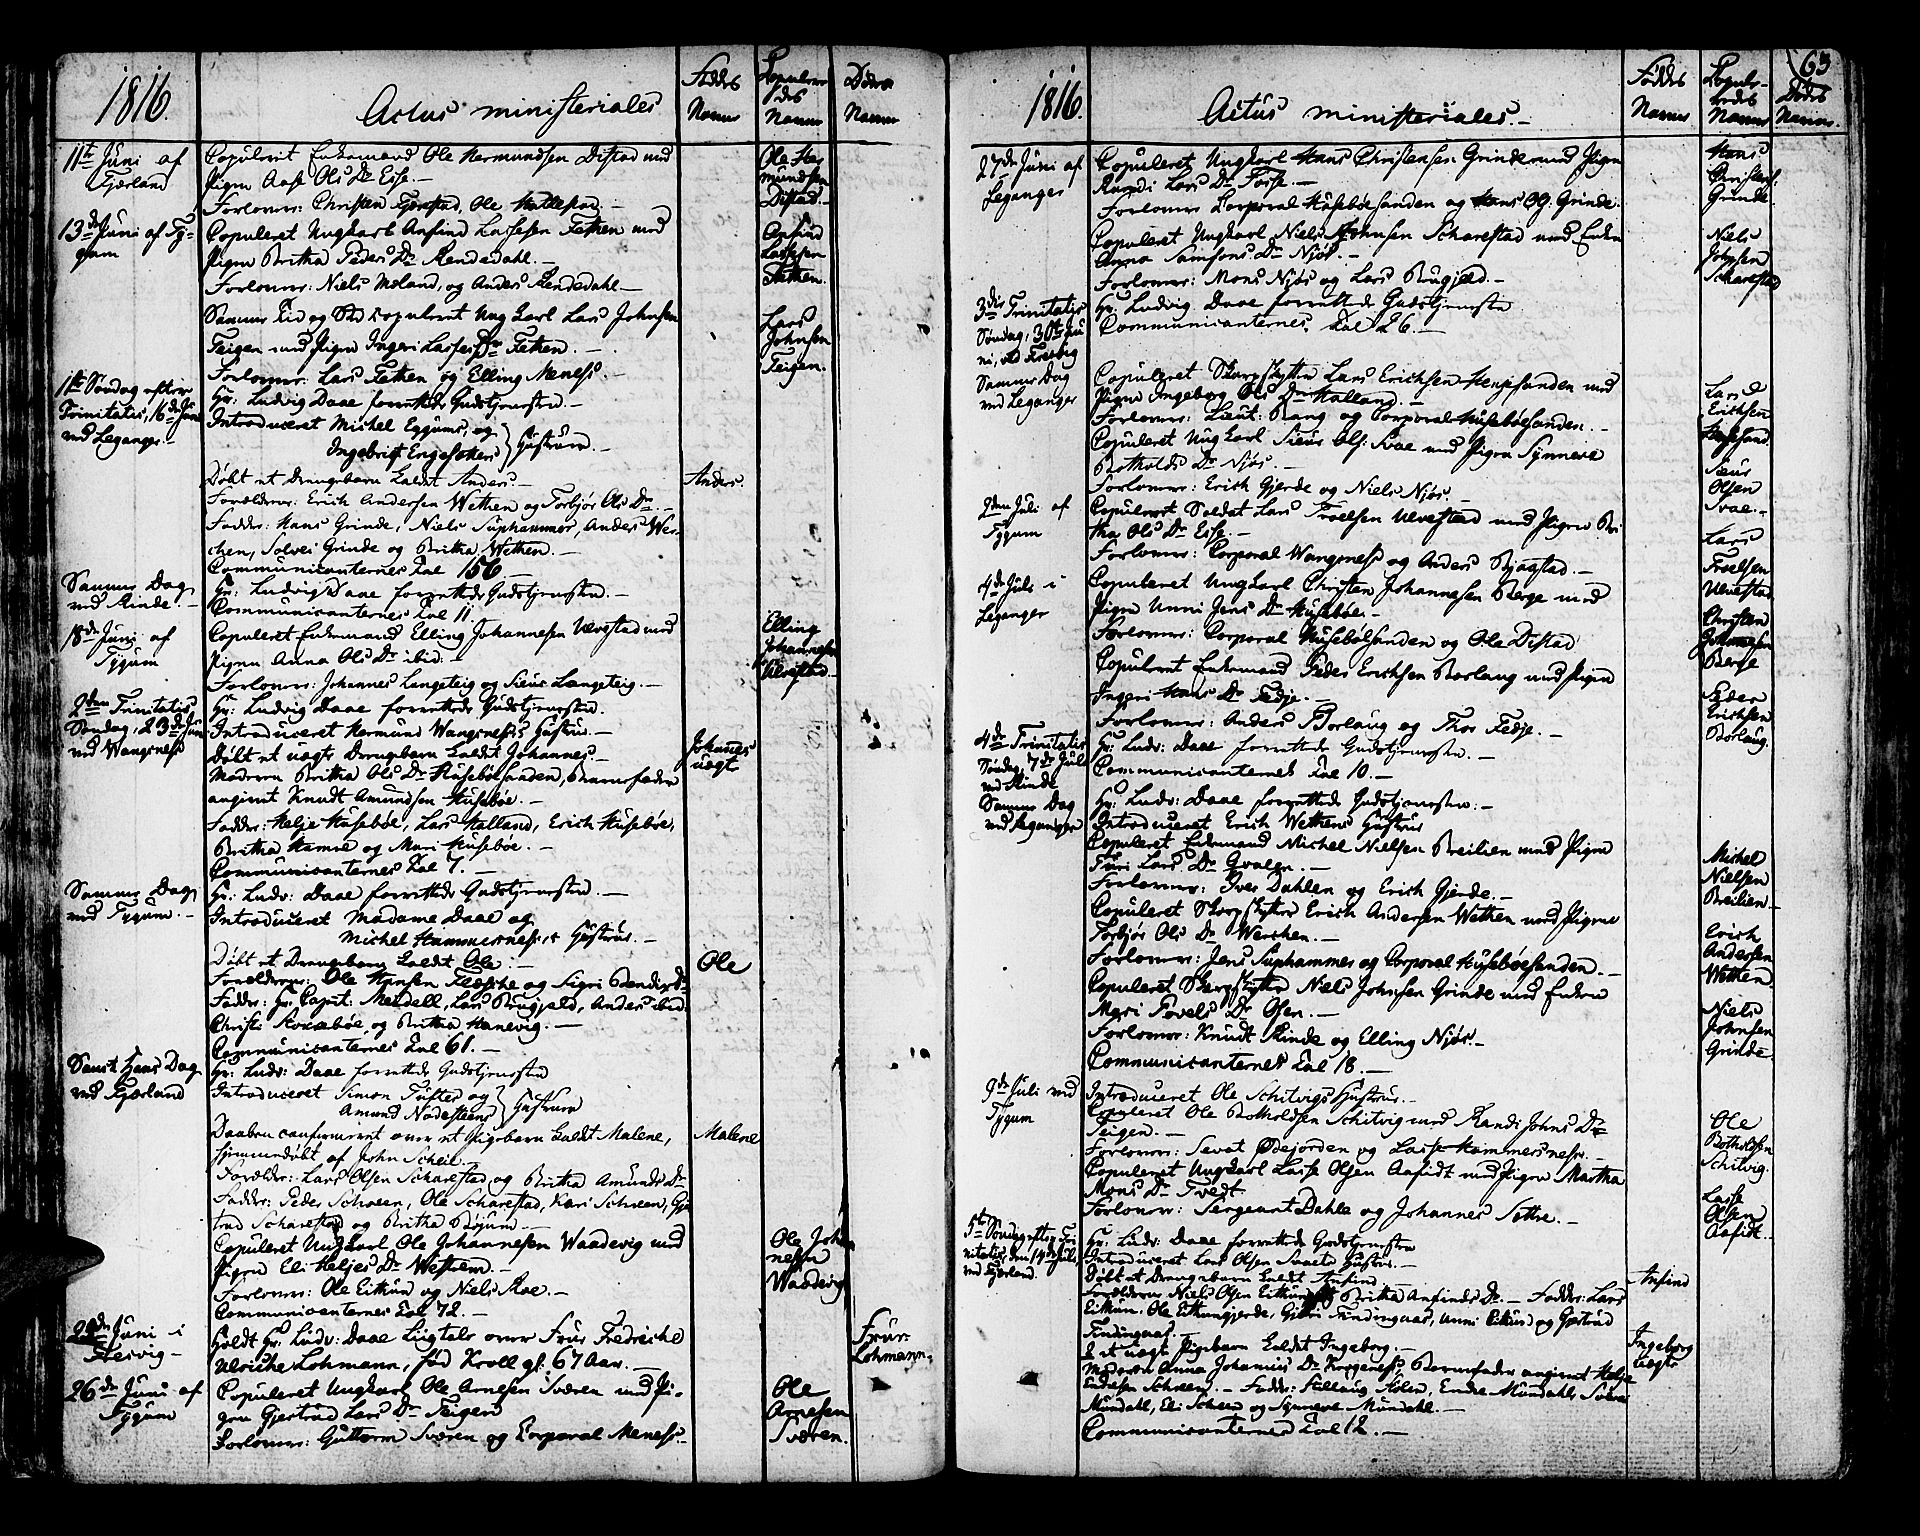 1816.
Actus ministeriales
Føddes Navne
Copulerede Navne
Dødes Navne
11te Juni af Tjærland
Copuleret Enkemand Ole Hermundsen Distad med
Pigen Aase Ols Dr Esse. –
Forlovere: Christen Gjerstad, Ole Hatlestad. –
Ole Hermundsen Distad. –
13de Juni af Tygum
Copuleret Ungkarl Anfind Lassesen Fethen med
Pigen Britha Peders Dr Rendedahl. –
Forlovere: Niels Moland, og Anders Rendedahl –
Anfind Lassesen Fethen.
Samme Tid og Sted copuleret Ungkarl Lars Johnsen
Teigen med Pigen Ingeri Lasses Dr Fethen. –
Forlovere: Lars Fethen og Elling Meness. –
Lars Johnsen Teigen.
1te Søndag efter Trinitatis, 16de Juni ved Leganger. –
Hr: Ludvig Daae forrettede Gudstjenesten. –
Introduceret Michel Eggums, og
Ingebrigt Engesæters } Hustruer. –
Døbt et Drengebarn kaldt Anders –
Anders.
Forældrene: Erich Andersen Wethen og Torbjør Ols Dr –
Fadder: Hans Grinde, Niels Suphammer, Anders Wer-
chen, Solvei Grinde og Britha Wethen. –
Communicanternes Tal 156 –
Samme Dag ved Rinde. –
Hr: Ludvig Daae forrettede Gudstjenesten. –
Communicanternes Tal 11. –
18de Juni af Tygum
Copuleret Enkemand Elling Johannesen Ulvestad med
Pigen Anna Ols Dr ibid: –
Forlovere: Johannes Langeteig og Siur Langeteig. –
Elling Johannesen Ulvestad. –
2den Trinitatis Søndag, 23de Juni ved Wangsness
Hr: Ludvig Daae forrettede Gudstjenesten.
Introduceret Hermund Wangsness's Hustrue. –
Døbt et uægt Drengebarn kaldt Johannes. –
Johannes uægt
Moderen Britha Ols Dr Husebøesanden, Barnefader
angivet Knudt Amundsen Husebøe. –
Fadder: Helje Husebøe, Lars Halland, Erich Husebøe,
Britha Hamre og Mari Husebøe. –
Communicanternes Tal 7. –
Samme Dag ved Tygum. –
Hr: Ludv: Daae forrettede Gudstjenesten. –
Introduceret Madame Daae og
Michel Hammersness's Hustrue. –
Døbt et Drengebarn kaldt Ole. –
Ole
Forældrene: Ole Hansen Flesche og Sigri Bendixs Dr
Fadder: Hr Capit: Mendell, Lars Brugjeld, Anders ibid.
Christi Rossebøe, og Britha Hanevig. –
Communicanternes Tal 61. –
Sanct Hans Dag ved Fjærland
Hr: Ludv: Daae forrettede Gudstjenesten
Introduceret Simon Tufter og
Amund Nodesteens } Hustruer
Daaben confirmeret over et Pigebarn kaldt Malene,
Malene
hjemmedøbt af John Scheie.
Forældre: Lars Olsen Scharestad og Britha Amunds Dr
Fadder: Peder Scheen, Ole Scharestad, Kari Scheen, Gje-
trud Scharestad og Britha Bøjum. –
Copuleret Ungkarl Ole Johannesen Waadevig med
Pigen Eli Heljes Dr Westrem. –
Forlovere: Ole Eitkun og Niels Roe. –
Communicanternes Tal 72. –
Ole Johannesen Waadevig
Juni i Fresvig –
Holdt Hr: Ludv: Daae Ligtale over Frue Fredriche
Ulriche Lohmann, fød Kroll gl: 67 Aar. –
Frue Lohmann. –
26de Juni af Tygum
Copuleret Ungkarl Ole Arnesen Sværen med Pi-
gen Gjertrud Lars Dr Teigen
Forlovere: Guttorm Sværen og Corporal Meness. –
Ole Arnesen Sværen.
63
1816.
Actus ministeriales. –
Føddes Navne
Copuleredes Navne
Dødes Navne.
27de Juni af Leganger
Copuleret Ungkarl Hans Christensen Grinde med Pigen
Randi Lars Dr Fosse. –
Forlovere Corporal Husebøesanden og Hans O. Grinde.
Hans Christens: Grinde.
Copuleret Ungkarl Niels Johnsen Scharestad med Enken
Anna Samsons Dr Njøs. –
Forlovere: Mons Njøs og Lars Brugjeld. –
Niels Johnsen Scharestad
3die Trinitatis Søndag, 30te Juni, ved Fresvig
Hr: Ludvig Daae forrettede Gudstjenesten
Communicanternes Tal 26. –
Samme Dag ved Leganger
Copuleret Skarpskytter Lars Erichsen Henjesanden med
Pigen Ingeborg Ols Dr Halland. –
Forlovere: Lieut: Bang og Corporal Husebøesanden. –
Lars Erichsen Henjesand.
Copuleret Ungkarl Siur Ols: Svae med Pigen Synneva
Botholds Dr Njøs. –
Forlovere: Erich Gjerde og Niels Njøs. –
Siur Olsen Svae. –
2den Juli af Tygum
Copuleret Soldat Lars Troelsen Ulvestad med Pigen Bri-
tha Ols Dr Esse. –
Forlovere: Corporal Wangsness og Anders Bjaastad. –
Lars Troelsen Ulvestad
4de Juli i Leganger
Copuleret Ungkarl Christen Johannesen Berge med
Pigen Unni Jens Dr Husebøe. –
Forlovere: Corporal Husebøesanden og Ole Distad
Christen Johannesen Berge
Copuleret Enkemand Peder Erichsen Borlaug med Pigen
Ingeri Hans Dr Fedje. –
Forlovere: Anders Borlaug og Thor Fedje. –
Peder Erichsen Borlaug.
4de Trinitatis Søndag, 7de Juli ved Rinde
Hr: Ludv: Daae forrettede Gudstjenesten. –
Communicanternes Tal 10. –
Samme Dag ved Leganger
Hr: Ludv: Daae forrettede Gudstjenesten: –
Introduceret Erich Wethens Hustrue
Copuleret Enkemand Michel Nielsen Breilien med Pigen
Turi Lars Dr Qvalen. –
Forlovere: Iver Dahlen og Erich Gjerde. –
Michel Nielsen Breilien –
Copuleret Skarpskytter Erich Andersen Wethen med Pigen
Torbjør Ols Dr Werchen. –
Forlovere: Jens Suphammer og Corporal Husebøesanden. –
Erich Andersen Wethen
Copuleret Skarpskytter Niels Johnsen Grinde med Enken
Mari Povels Dr Olsen. –
Forlovere: Knudt Rinde og Elling Njøs. –
Communicanternes Tal 18. –
Niels Johnsen Grinde.
9de Juli ved Tygum
Introduceret Ole Schitvigs Hustrue. –
Copuleret Ole Botholdsen Schitvig med Randi Johns Dr
Teigen. –
Forlovere: Savat Ødejorden og Lasse Hammersness. –
Ole Botholdsen Schitvig.
Copuleret Ungkarl Lasse Olsen Aafidt med Pigen Martha
Mons Dr Tvedt
Forlovere: Sergeant Dahle og Johannes Settre. –
Lasse Olsen Aafidt.
5te Søndag efter Trinitatis, den 14de Juli, ved Fjærland.
Hr: Ludv: Daae forrettede Gudstjenesten
Introduceret Lars Olsen Svaers Hustrue. –
Døbt et Drengebarn kaldt Anfind. –
Anfind
Forældrene Niels Olsen Eitkun og Britha Anfinds Dr. – Fadder: Lars
Eitkun, Ole Eitkungjerde, Gjøri Findingaas, Unni Eikun og Gjertrud
Findingaas. –
Et uægt Pigebarn kaldt Ingeborg.
Ingeborg uægte
Moderen Anna Johannis Dr Knogeness, Barnefader angivet Helje
Endresen Scheen. – Fadder: Sillaug Aslen, Endre Mundahl, Solvei
Mundahl, Eli Scheen og Synneve Mundahl. –
Communicanternes Tal 12. –